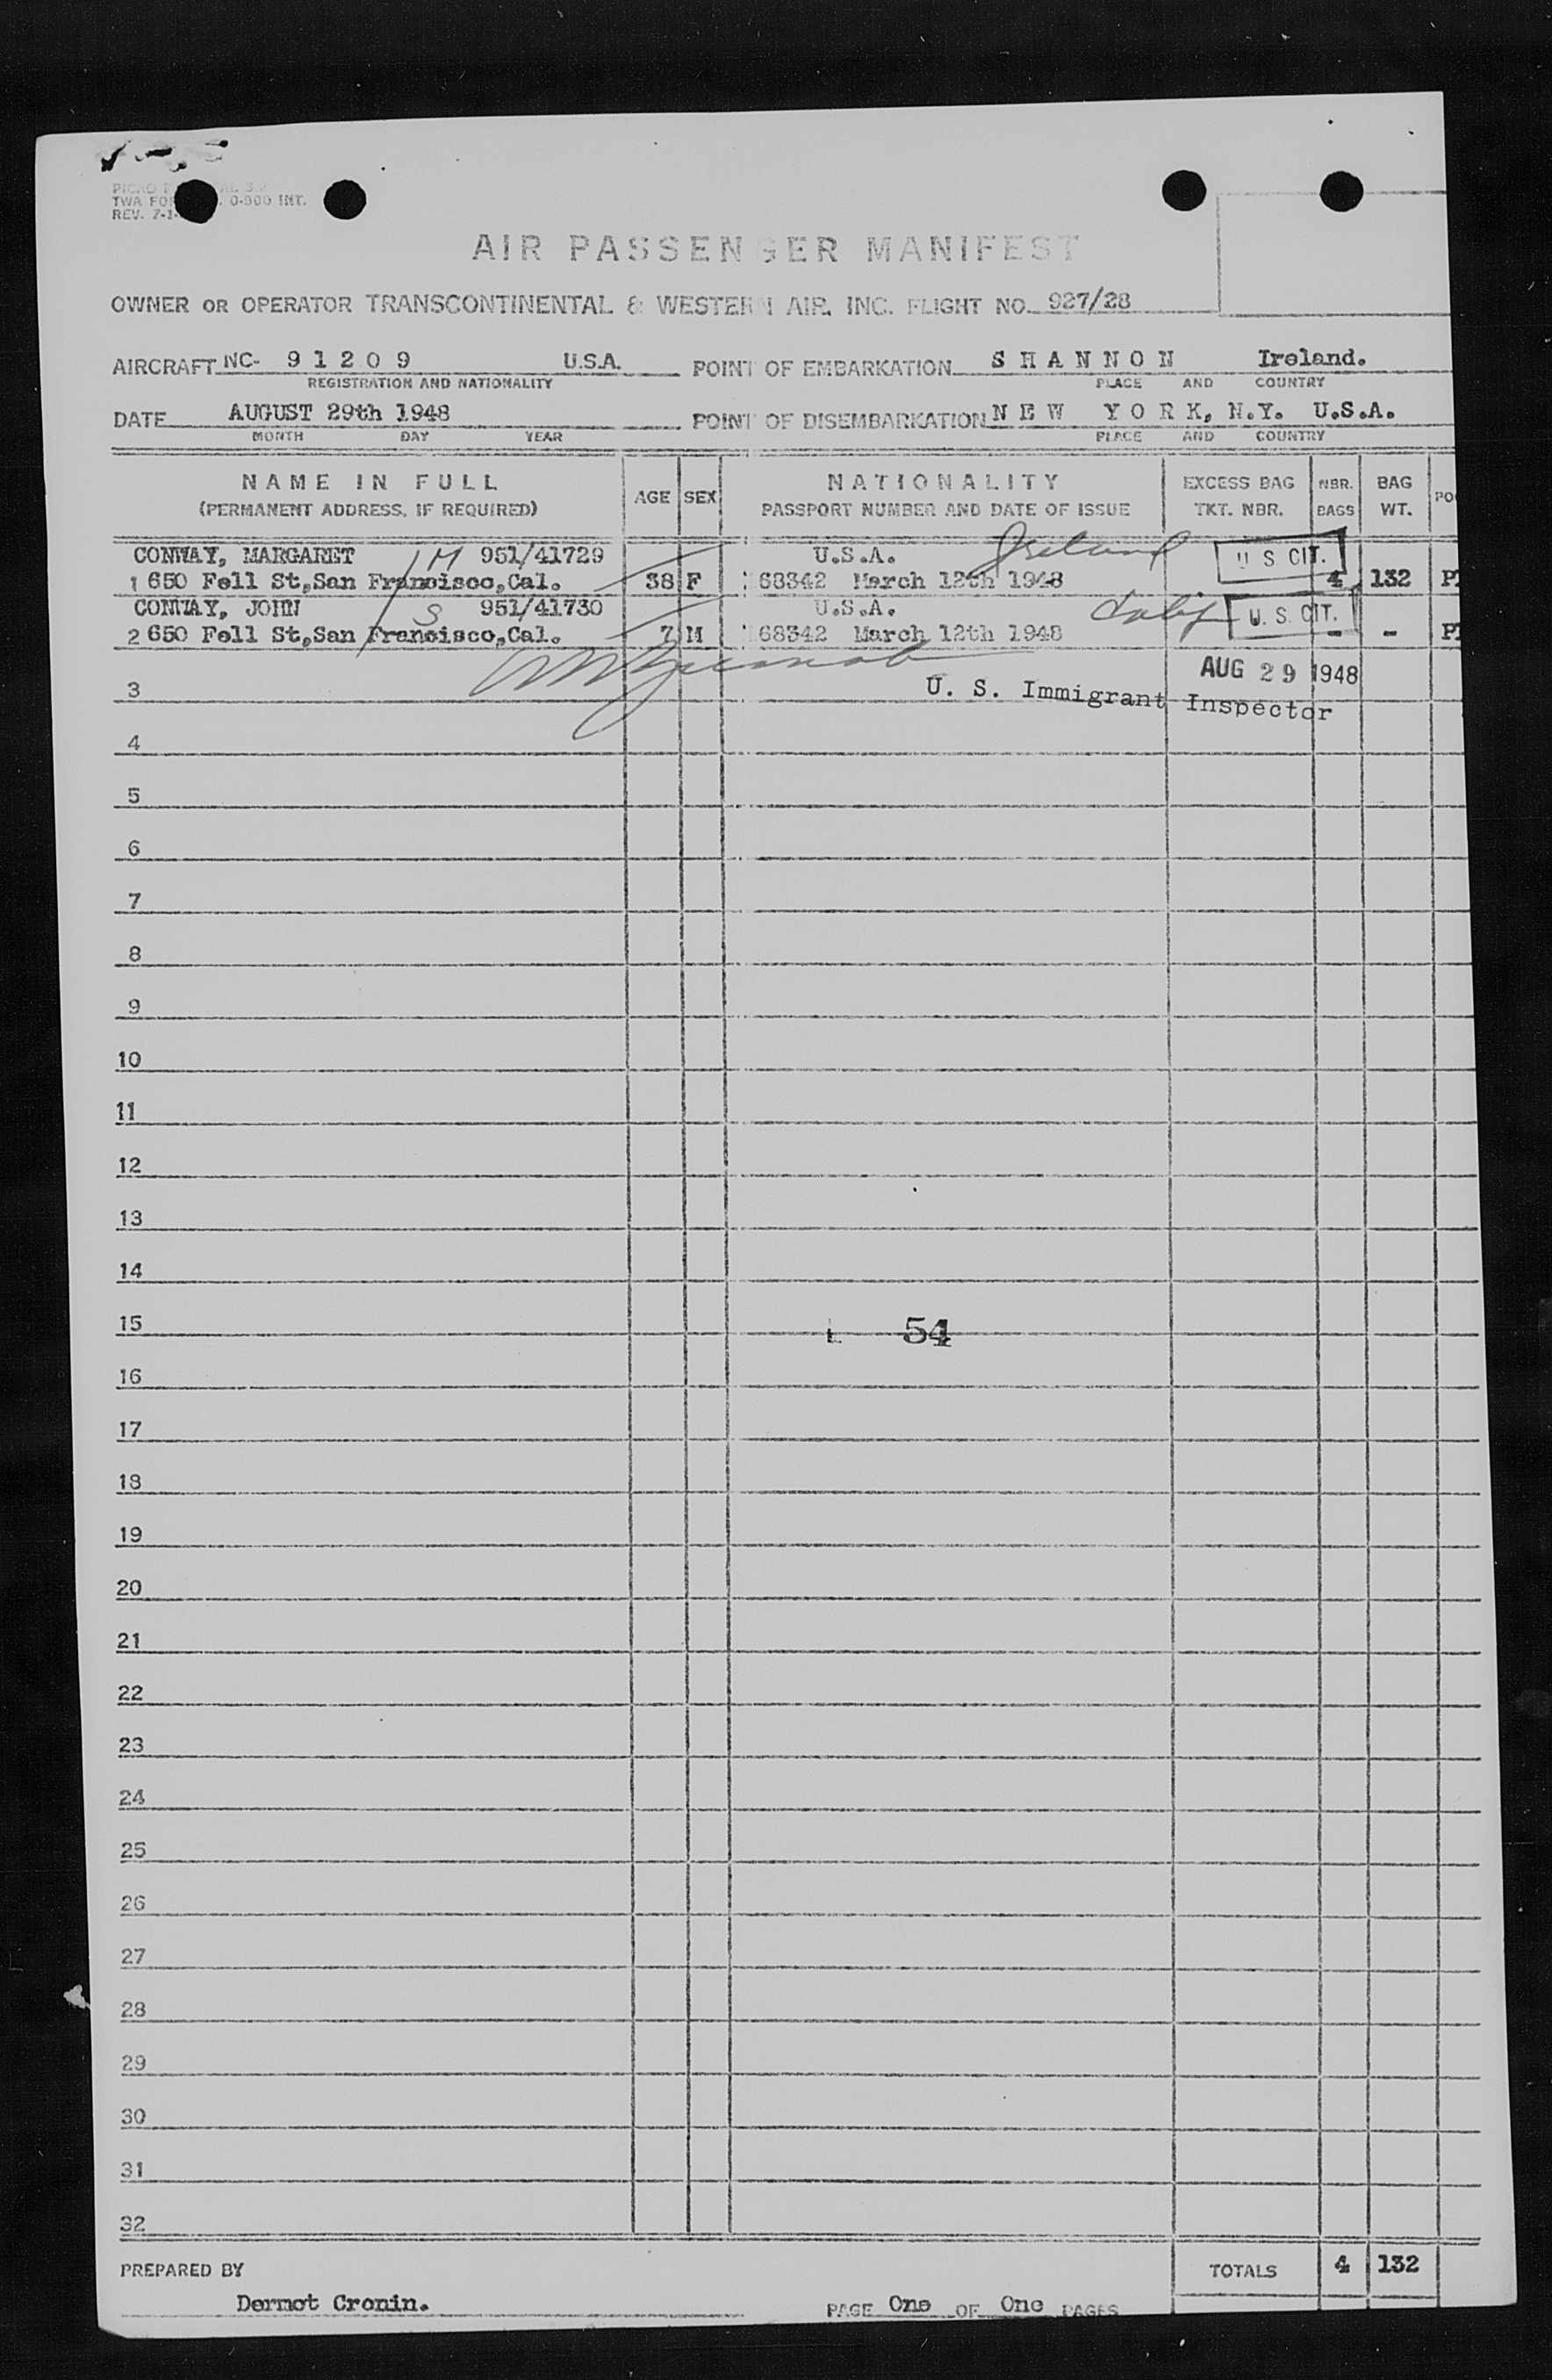 TWA FO 0-800 INT.
REV. 7-1-
AIR PASSENGER MANIFEST
OWNER OR OPERATOR TRANSCONTINENTAL & WESTERN AIR, INC. FLIGHT NO. 927/28
AIRCRAFT NC- 9 1 2 0 9 U.S.A. POINT OF EMBARKATION S H A N N O N Ireland.
REGISTRATION AND NATIONALITY PLACE AND COUNTRY
DATE AUGUST 29th 1948 POINT OF DISEMBARKATION N E W Y O R K, N.Y. U.S.A.
MONTH DAY YEAR PLACE AND COUNTRY
NAME IN FULL AGE SEX NATIONALITY EXCESS BAG NBR. BAG
(PERMANENT ADDRESS, IF REQUIRED) PASSPORT NUMBER AND DATE OF ISSUE TKT. NBR. BAGS WT.
CONWAY, MARGARET M 951/41729 U.S.A. Ireland U S CIT.
1 650 Fell St,San Francisco,Cal. 38 F 68342 March 12th 1948 4 132
CONWAY, JOHN S 951/41730 U.S.A. Calif U. S. CIT.
2 650 Fell St,San Francisco,Cal. 7 M 68342 March 12th 1948 - -
AUG 29 1948
3 U. S. Immigrant Inspector
4
5
6
7
8
9
10
11
12
13
14
15 54
16
17
18
19
20
21
22
23
24
25
26
27
28
29
30
31
32
PREPARED BY TOTALS 4 132
Dermot Cronin. PAGE One OF One PAGES